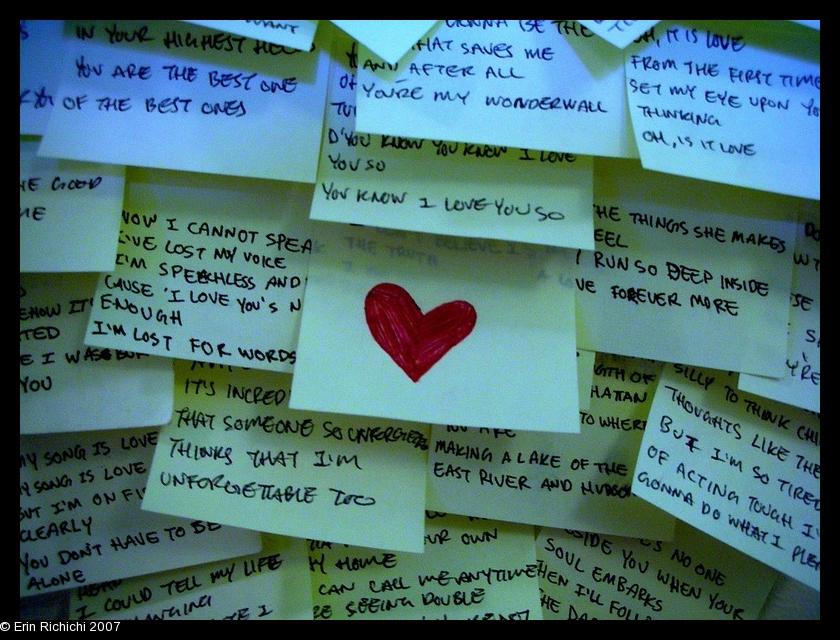 WANT
IN YOUR HIGHEST
YOU ARE THE BEST ONE
OF THE BEST ONES
GONNA BE THE
THAT SAVES ME
AND AFTER ALL
YOU'RE MY WONDERWALL
OH, IT IS LOVE
FROM THE FIRST TIME
SET MY EYE UPON
THINKING
OH, IS IT LOVE
D'YOU KNOW YOU KNOW I LOVE
YOU SO
YOU KNOW I LOVE YOU SO
GOOD
ME
NOW I CANNOT
I'VE LOST MY VOICE
I'M SPEECHLESS AND
CAUSE 'I LOVE YOU'S
ENOUGH
I'M LOST FOR WORDS
THE TRUTH
THE THINGS SHE MAKES
I RUN SO DEEP INSIDE
FOREVER MORE
IT
I WAS
YOU
IT'S
THAT SOMEONE SO
THINKS THAT I'M
UNFORGETTABLE TOO
OF
TO
MAKING A LAKE OF THE
EAST RIVER AND HUDSON
SILLY TO THINK
THOUGHTS LIKE
BUT I'M SO TIRED
OF ACTING TOUGH
GONNA DO WHAT I
MY SONG IS LOVE
MY SONG IS LOVE
BUT I'M ON
CLEARLY
YOU DON'T HAVE TO BE
ALONE
I COULD TELL MY LIFE
I
YOUR OWN
MY HOME
CAN CALL ME ANYTIME
SEEING DOUBLE
NO ONE
YOU WHEN YOUR
SOUL EMBARKS
THEN I'LL
© Erin Richichi 2007